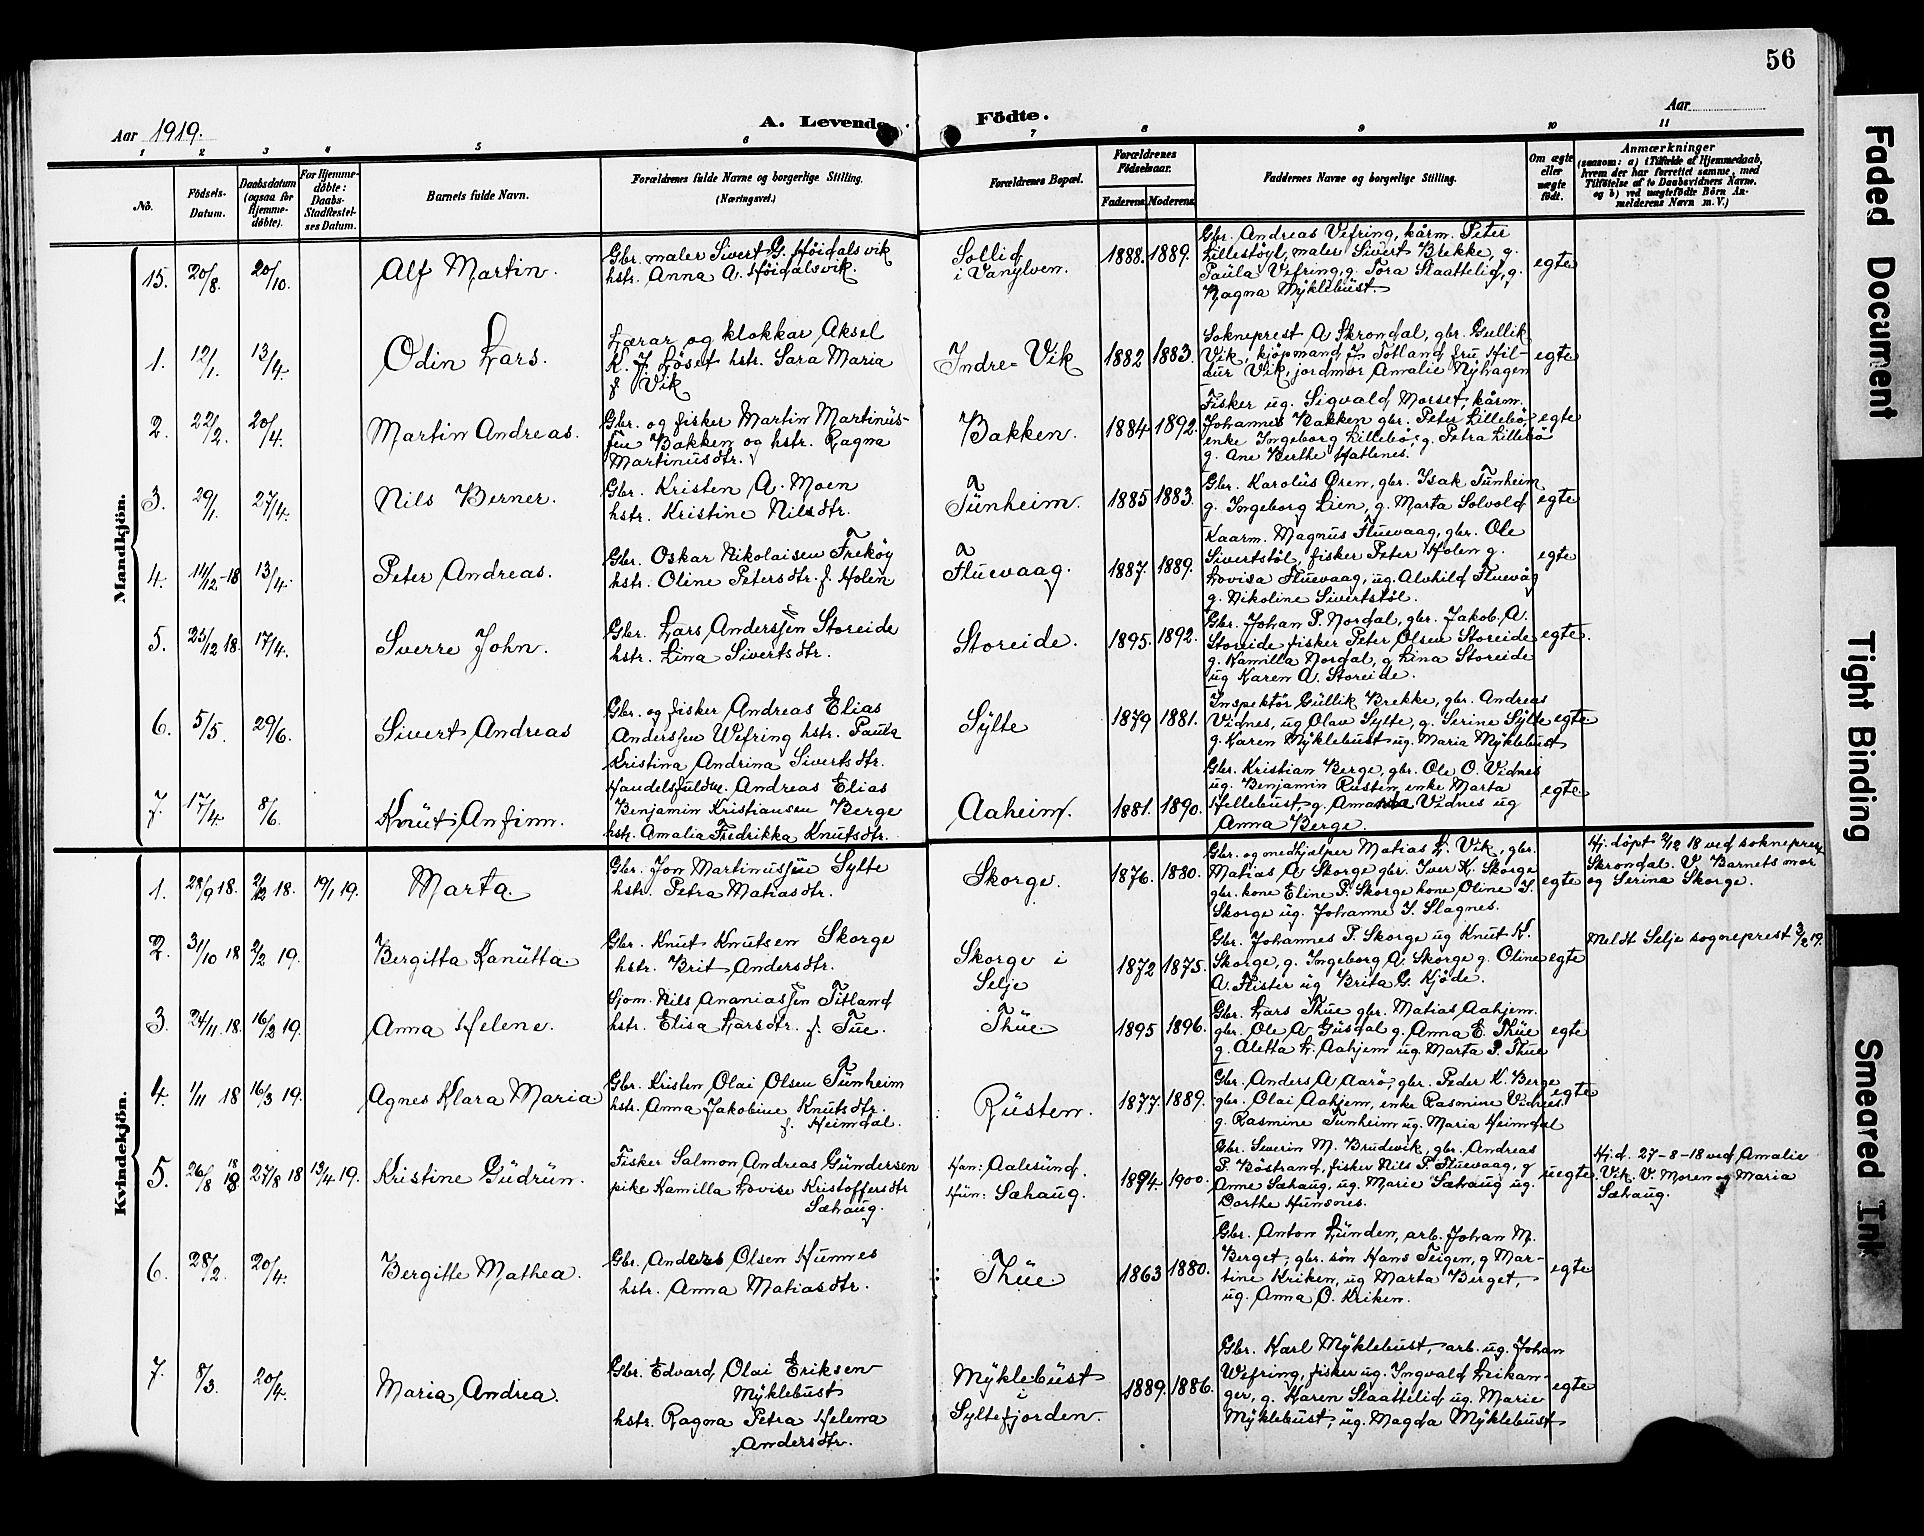 56
Aar 1919.
A. Levende Födte.
Aar
1 2 3 4 5 6 7 8 9 10 11
No.
Födsels-
Datum.
Daabsdatum
(ogsaa for
Hjemme-
döbte).
For Hjemme-
döbte:
Daabs-
Stadfestel-
ses Datum.
Barnets fulde Navn.
Forældrenes fulde Navne og borgerlige Stilling.
(Næringsvei.)
Forældrenes Bopæl.
Forældrenes
Födselsaar.
Faderens Moderens
Faddernes Navne og borgerlige Stilling.
Om ægte
eller
uægte
födt.
Anmærkninger
(saasom: a) i Tilfælde af Hjemmedaab,
hvem der har forrettet samme, med
Tilföielse af to Daabsvidners Navne,
og b) ved uægtefödte Börn An-
melderens Navn m. V.)
Mandkjön.
15. 20/8. 20/10. Alf Martin.
Gbr. maler Sivert G. Höidalsvik
hstr. Anna A. Höidalsvik.
Sollid
i Vanylven.
1888. 1889.
Gbr. Andreas Vefring, kårm. Peter
Lillestöyl, maler Sivert Brekke, g.
Paula Vefring, g. Tora Slaattelid, g.
Ragna Myklebust.
egte
1. 12/1. 13/4. Odin Lars.
Lærar og klokkar Aksel
K. J. Löset hstr. Sara Maria
f. Vik
Indre-Vik
1882 1883.
Sokneprest A Skrondal, gbr. Gullik
Vik, kjöpmand J. Totland, fru Hil-
dur Vik, jordmor Amalie Nyhagen
egte
2. 22/2. 20/4. Martin Andreas.
Gbr. og fisker Martin Martinus-
sen Bakken og hstr. Ragna
Martinusdtr.
Bakken.
1884 1892.
Fisker ug. Sigvald Morset, kårm.
Johannes Bakken gbr. Peter Lillebö,
enke Ingeborg Lillebö, g. Petra Lillebö
g. Ane Berthe Hatlenes.
egte
3. 29/1. 27/4. Nils Berner.
Gbr. Kristen A. Moen
hstr. Kristine Nilsdtr.
Tunheim.
1885 1883.
Gbr. Karolus Ören, gbr. Isak Tunheim
g. Ingeborg Lien, g. Marta Solvold
egte
4. 14/12-18 13/4. Peter Andreas.
Gbr. Oskar Nikolaisen Frekøy
hstr. Oline Petersdtr. f. Holen
Fluevaag.
1887. 1889.
Kaarm. Magnus Fluevaag, gbr. Ole
Sivertstöl, fisker Peter Holen g.
Lovisa Fluevaag, ug. Alvhild Fluevåg
g. Nikoline Sivertstöl.
egte
5. 25/12 18. 17/4. Sverre John.
Gbr. Lars Anderssen Storeide
hstr. Lina Sivertsdtr.
Storeide.
1895. 1892.
Gbr. Johan P. Nordal, gbr. Jakob A.
Storeide, fisker Peter Olsen Storeide
g. Kamilla Nordal, g. Lina Storeide
ug Karen A. Storeide.
egte.
6. 5/5. 29/6. Sivert Andreas
Gbr. og fisker Andreas Elias
Anderssen Wefring hstr. Paula
Kristina Andrina Sivertsdtr.
Sylte
1879 1881.
Inspektör Gullik Brekke, gbr. Andreas
Vidnes, ug Olav Sylte, g. Serine Sylte
g. Karen Myklebust ug. Maria Myklebust
egte
7. 17/4. 8/6. Knut Anfinn.
Handelsfuldm. Andreas Elias
Benjamin Kristiansen Berge
hstr. Amalia Fredrikka Knutsdtr.
Aaheim.
1881. 1890.
Gbr. Kristian Berge, gbr. Ole O. Vidnes
ug. Benjamin Rusten, enke Marta
Hellebust, g. Amanda Vidnes ug
Anna Berge.
egte
Kvindekjön.
1. 28/9 18. 2/12 18. 19/1 19. Marta.
Gbr. Jon Martinussen Sylte
hstr. Petra Matiasdtr.
Skorge.
1876. 1880.
Gbr. og medhjælper Matias L. Vik, gbr.
Matias A Skorge gbr. Iver K. Skorge
gbr. kone Eline P. Skorge kone Oline I.
Skorge ug. Johanne I. Slagnes.
egte
Hj. döpt 2/12 18 ved sokneprest
Skrondal. V. Barnets mor
og Serina Skorge.
2. 31/10 18 2/2 19. Bergitta Kanutta.
Gbr. Knut Knutsen Skorge
hstr. Brit Andersdtr.
Skorge i
Selje
1872 1875.
Gbr. Johannes P. Skorge ug Knut K.
Skorge, g. Ingeborg A. Skorge g. Oline
A. Flister ug Brita G. Kjöde.
egte
Meldt Selje sogneprest 3/2 19.
3. 24/11 18. 16/2 19. Anna Helene.
Sjom. Nils Ananiassen Titland
hstr. Elisa Larsdtr. f. Tue.
Thue
1895 1896.
Gbr. Lars Thue gbr. Matias Aahjem.
gbr. Ole A. Gusdal g. Anna E. Thue
g. Aletta L. Aahjem ug. Marta P. Thue
egte
4. 1/11 18 16/3 19. Agnes Klara Maria
Gbr. Kristen Olai Olsen Tunheim
hstr. Anna Jakobine Knutsdtr.
f. Heimdal.
Rusten.
1877. 1889.
Gbr. Anders A Aarö, gbr. Peder K. Berge
gbr. Olai Aahjem, enke Rasmine Vidnes.
g. Rasmine Tunheim ug. Maria Heimdal
egte
5. 26/8 18 27/8 18 13/4 19. Kristine Gudrun.
Fisker Salmon Andreas Gundersen
pike Kamilla Lovise Kristoffersdtr
Sæhaug.
Han: Aalesund.
Hun: Sæhaug.
1894. 1900.
Gbr. Severin M. Brudevik, gbr. Andreas
P. Böstrand, fisker Nils P. Fluevaag, g
Anne Sæhaug, ug. Marie Sæhaug ug.
Dorthe Hunsnes.
uegte
Hj.d. 27-8-18 ved Amalie
Vik. V. Moren og Maria
Sæhaug.
6. 28/2. 20/4. Bergitte Mathea.
Gbr. Anders Olsen Humnes
hstr. Anna Matiasdtr.
Thue
1863 1880.
Gbr. Anton Lunden, arb. Johan M.
Berget, gbr. sön Hans Teigen, g Mar-
tine Kriken, ug Marta Berget,
ug. Anna O. Kriken.
egte
7. 8/3. 20/4. Maria Andrea.
Gbr. Edvard Olai Eriksen
Myklebust
hstr. Ragna Petra Helena
Andersdtr.
Myklebust
i
Syltefjorden.
1889. 1886.
Gbr. Karl Myklebust, arb. ug. Johan
Wefring, fisker ug. Ingvald Leikan-
ger, g. Karen Slaattelid ug. Marie
Myklebust, ug. Magda Myklebust
egte
Faded Document
Tight Binding
Smeared Ink